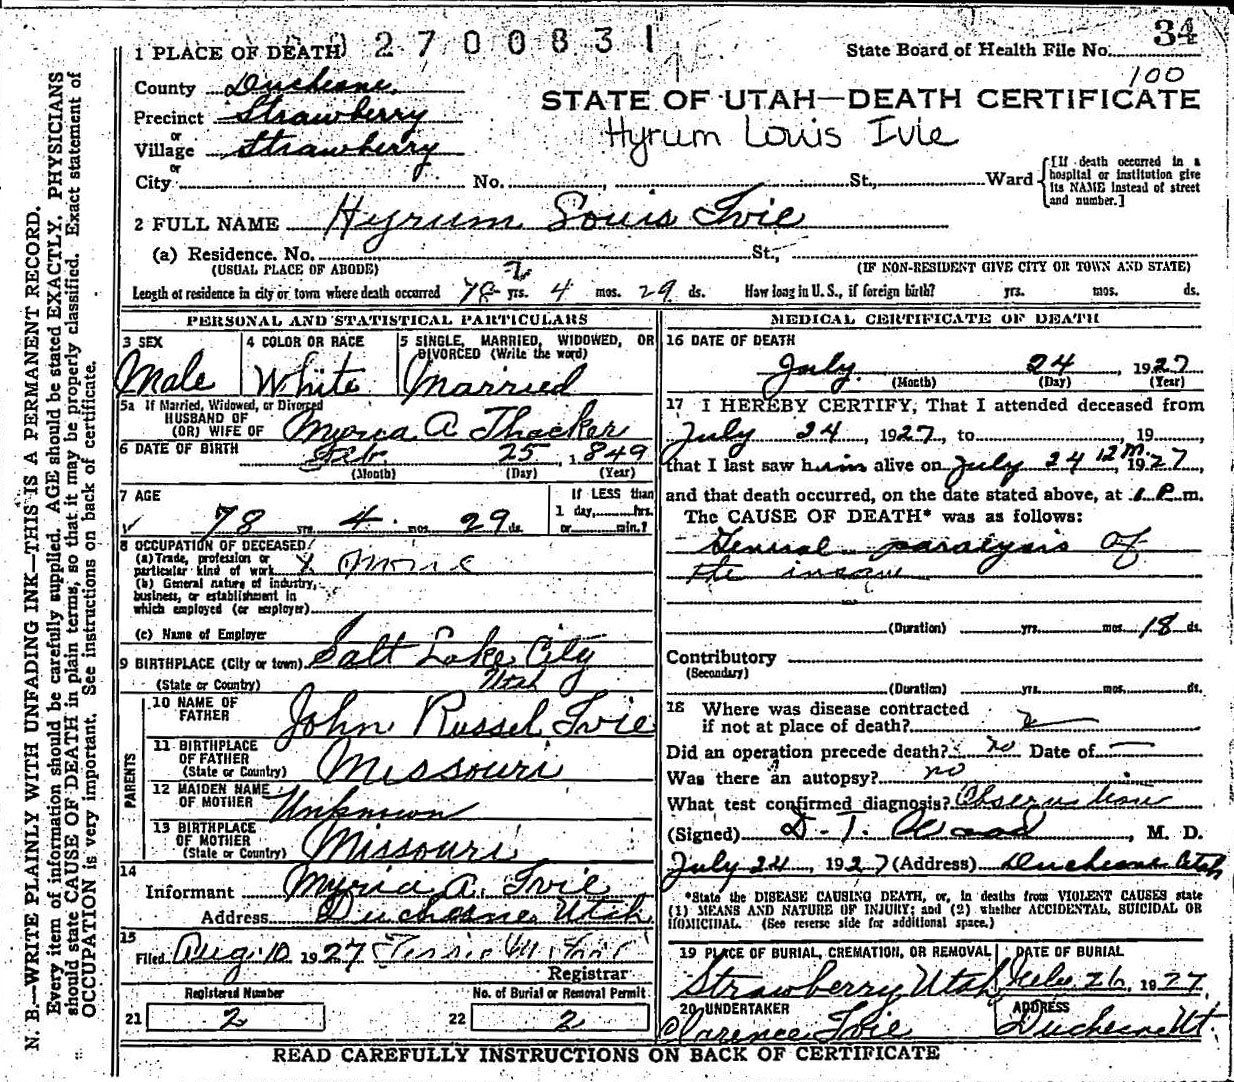 34
2700831
1 PLACE OF DEATH
State Board of Health File No.
100
County Duchesne
STATE OF UTAH—DEATH CERTIFICATE
Precinct Strawberry
Hyrum Louis Ivie
or
Village Strawberry
or
City No. , St., Ward
[If death occurred in a hospital or institution give its NAME instead of street and number.]
2 FULL NAME Hyrum Louis Ivie
(a) Residence. No. St.,
(USUAL PLACE OF ABODE) (IF NON-RESIDENT GIVE CITY OR TOWN AND STATE)
Length of residence in city or town where death occurred 78 yrs. 4 mos. 29 ds. How long in U. S., if foreign birth? yrs. mos. ds.
PERSONAL AND STATISTICAL PARTICULARS
3 SEX
Male
4 COLOR OR RACE
White
5 SINGLE, MARRIED, WIDOWED, OR
DIVORCED (Write the word)
Married
5a If Married, Widowed, or Divorced
HUSBAND OF
(OR) WIFE OF Myrica A Thacker
6 DATE OF BIRTH Feb 25, 1849
(Month) (Day) (Year)
7 AGE
78 yrs. 4 mos. 29 ds.
If LESS than
1 day, hrs.
or min.?
8 OCCUPATION OF DECEASED
(a) Trade, profession or
particular kind of work
(b) General nature of industry,
business, or establishment in
which employed (or employer)
(c) Name of Employer
9 BIRTHPLACE (City or town) Salt Lake City
(State or Country) Utah
PARENTS
10 NAME OF
FATHER John Russel Ivie
11 BIRTHPLACE
OF FATHER
(State or Country) Missouri
12 MAIDEN NAME
OF MOTHER Unknown
13 BIRTHPLACE
OF MOTHER
(State or Country) Missouri
14
Informant Myrica A. Ivie
Address Duchesne Utah
15
Filed Aug 10 1927
Registrar
Registered Number
No. of Burial or Removal Permit
21 2
22 2
MEDICAL CERTIFICATE OF DEATH
16 DATE OF DEATH
July 24, 1927
(Month) (Day) (Year)
17 I HEREBY CERTIFY, That I attended deceased from
July 24, 1927, to 19
that I last saw him alive on July 24 12 M. 1927,
and that death occurred, on the date stated above, at 1 P. m.
The CAUSE OF DEATH* was as follows:
General paralysis of
the insane
(Duration) yrs. mos. 18 ds.
Contributory
(Secondary)
(Duration) yrs. mos. ds.
18 Where was disease contracted
if not at place of death?
Did an operation precede death? no Date of —
Was there an autopsy? no
What test confirmed diagnosis? Observation
(Signed) D. T. Wood, M. D.
July 24, 1927 (Address) Duchesne Utah
*State the DISEASE CAUSING DEATH, or, in deaths from VIOLENT CAUSES state
(1) MEANS AND NATURE OF INJURY; and (2) whether ACCIDENTAL, SUICIDAL OR
HOMICIDAL. (See reverse side for additional space.)
19 PLACE OF BURIAL, CREMATION, OR REMOVAL
Strawberry Utah
DATE OF BURIAL
26, 1927
20 UNDERTAKER
Clarence Ivie
ADDRESS
Duchesne Ut.
READ CAREFULLY INSTRUCTIONS ON BACK OF CERTIFICATE
N. B.—WRITE PLAINLY WITH UNFADING INK—THIS IS A PERMANENT RECORD.
Every item of information should be carefully supplied. AGE should be stated EXACTLY. PHYSICIANS
should state CAUSE OF DEATH in plain terms, so that it may be properly classified. Exact statement of
OCCUPATION is very important. See instructions on back of certificate.